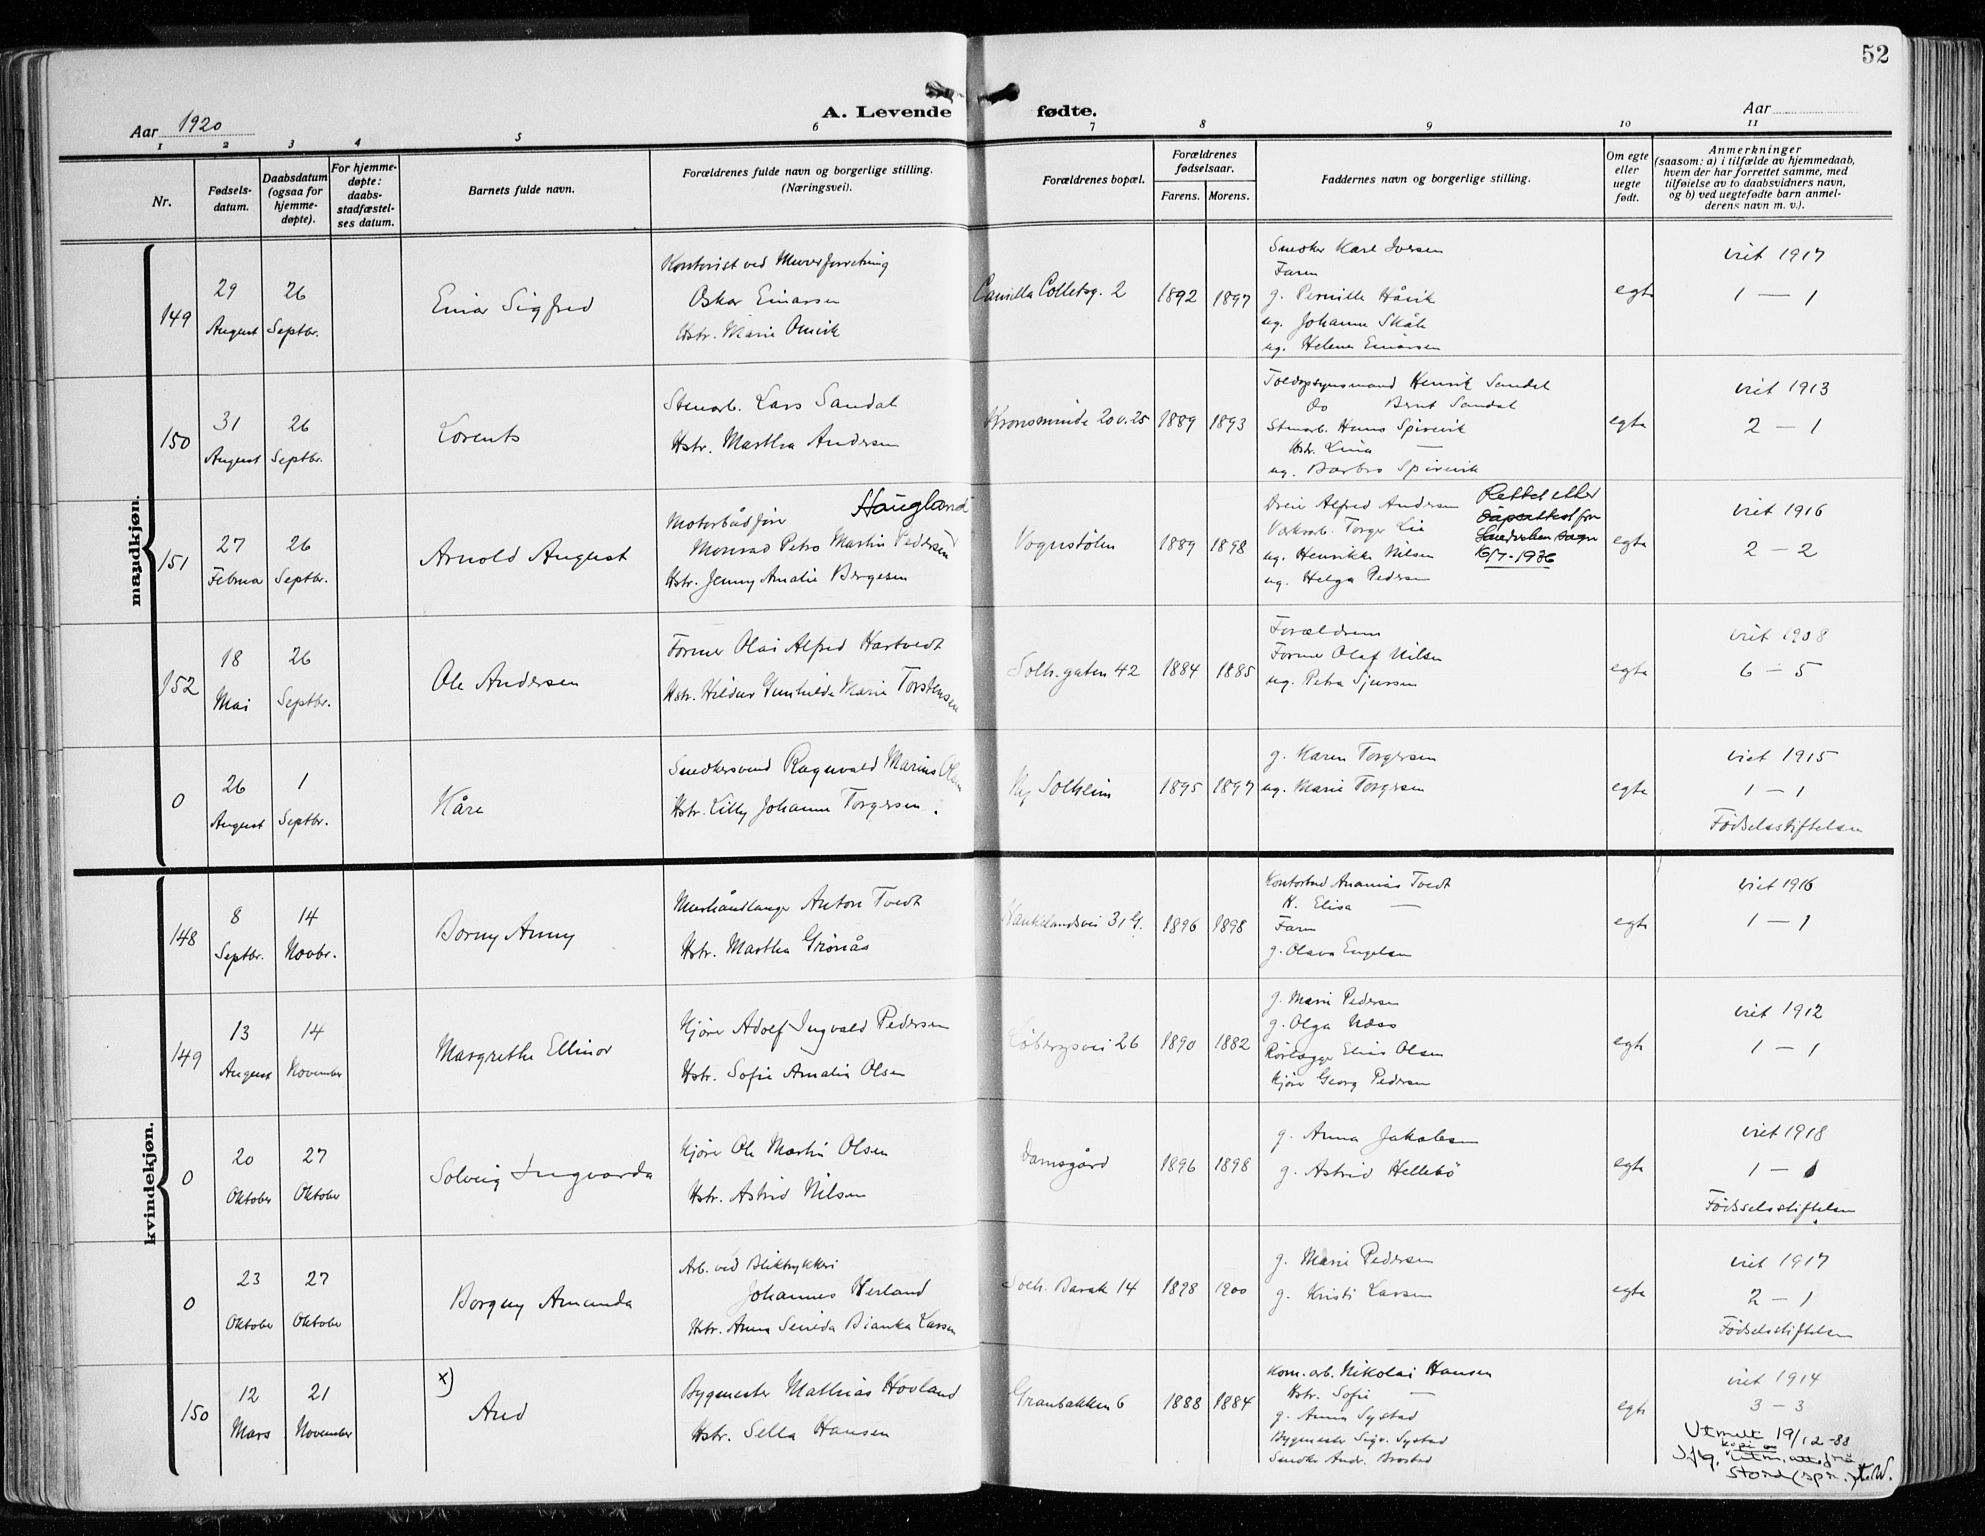 52
A. Levende fødte.
Aar 1920
Aar
1 2 3 4 5 6 7 8 9 10 11
Nr.
Fødsels-
datum.
Daabsdatum
(ogsaa for
hjemme-
døpte).
For hjemme-
døpte:
daabs-
stadfæstel-
ses datum.
Barnets fulde navn.
Forældrenes fulde navn og borgerlige stilling.
(Næringsvei).
Forældrenes bopæl.
Forældrenes
fødselsaar.
Farens. Morens.
Faddernes navn og borgerlige stilling.
Om egte
eller
uegte
født.
Anmerkninger
(saasom: a) i tilfælde av hjemmedaab,
hvem der har forrettet samme, med
tilføielse av to daabsvidners navn,
og b) ved uegtefødte barn anmel-
derens navn m. v.).
mandkjøn.
149
29
August
26
Septbr.
Einar Sigfred
Kontorist ved Murerforretning
Oskar Einarsen
Hstr. Marie Omvik
Camilla Colletsg. 2
1892
1897
Snedker Karl Iversen
Faren
g. Pernille Håvik
ug. Johanne Skåle
ug. Helene Einarsen
egte
viet 1917
1 — 1
150
31
August
26
Septbr.
Lorents
Stenarb. Lars Sandal
Hstr. Martha Andersen
Kronsminde 20 v. 25
1889
1893
Toldopsynsmand Henrik Sandal
Do Berut Sandal
Stenarb. Hans Spirevik
Hstr. Lina —
ug. Barbro Spirevik
egte
viet 1913
2 — 1
151
27
Februar
26
Septbr.
Arnold August
Motorbådfører Haugland
Monrad Petro Martin Pedersen
Hstr. Jenny Amalie Bergesen
Vognstølen
1889
1898
Dreier Alfred Andersen
Værksarb. Torger Lie
ug. Henrikke Nilsen
ug. Helga Pedersen
Rettet etter
dåpsattest fra
Sandviken sogn
16/7-1936
egte
viet 1916
2 — 2
152
18
Mai
26
Septbr.
Ole Andersen
Former Olai Alfred Hartvedt
Hstr. Hildur Gunhilde Marie Torstensen
Solh.gaten 42
1884
1885
Forældrene
Former Olaf Nilsen
ug. Petra Sjursen
egte
viet 1908
6 — 5
0
26
August
1
Septbr.
Kåre
Snedkersvend Ragnvald Marius Olsen
Hstr. Lilly Johanne Torgersen.
Ny Solheim
1895
1897
g. Karen Torgersen
ug. Marie Torgersen
egte
viet 1915
1 — 1
Fødselsstiftelsen
kvindekjøn.
148
8
Septbr.
14
Novbr.
Borny Anny
Murhåndlanger Anton Tvedt
Hstr. Martha Grønås
Haukelandsvei 31 G.
1896
1898
Kontorbud Ananias Tvedt
H. Elisa —
Faren
g. Olava Engelsen
egte
viet 1916
1 — 1
149
13
August
14
November
Margrethe Ellinor
Kjører Adolf Ingvald Pedersen
Hstr. Sofie Amalie Olsen
Løbergsvei 26
1890
1882
g. Marie Pedersen
g. Olga Næss
Rørlægger Elias Olsen
Kjører Georg Pedersen
egte
viet 1912
1 — 1
0
20
Oktober
27
Oktober
Solveig Ingvarda
Kjører Ole Martin Olsen
Hstr. Astrid Nilsen
Damsgård
1896
1898
g. Anna Jakobsen
g. Astrid Hellebø
egte
viet 1918
1 — 1
Fødselsstiftelsen
0
23
Oktober
27
Oktober
Borgny Amanda
Arb. ved Bliktrykkeri
Johannes Herland
Hstr. Anna Seneda Bianka Larsen
Solh. Barak 14
1898
1900
g. Marie Pedersen
g. Kristi Larsen
egte
viet 1917
2 — 1
Fødselsstiftelsen
150
12
Mars
21
November
x)
Aud
Bygmester Mathias Hovland
Hstr. Sella Hansen
Granbakken 6
1888
1884
Kom. arb. Nikolai Hansen
Hstr. Sofie —
g. Anna Systad
Bygmester Sigv. Systad
Snedker Andr. Brostad
egte
viet 1914
3 — 3
Utmeldt 19/12-88
kopi av
Iflg. utm. att. fra
Stord (spr.) K.W.